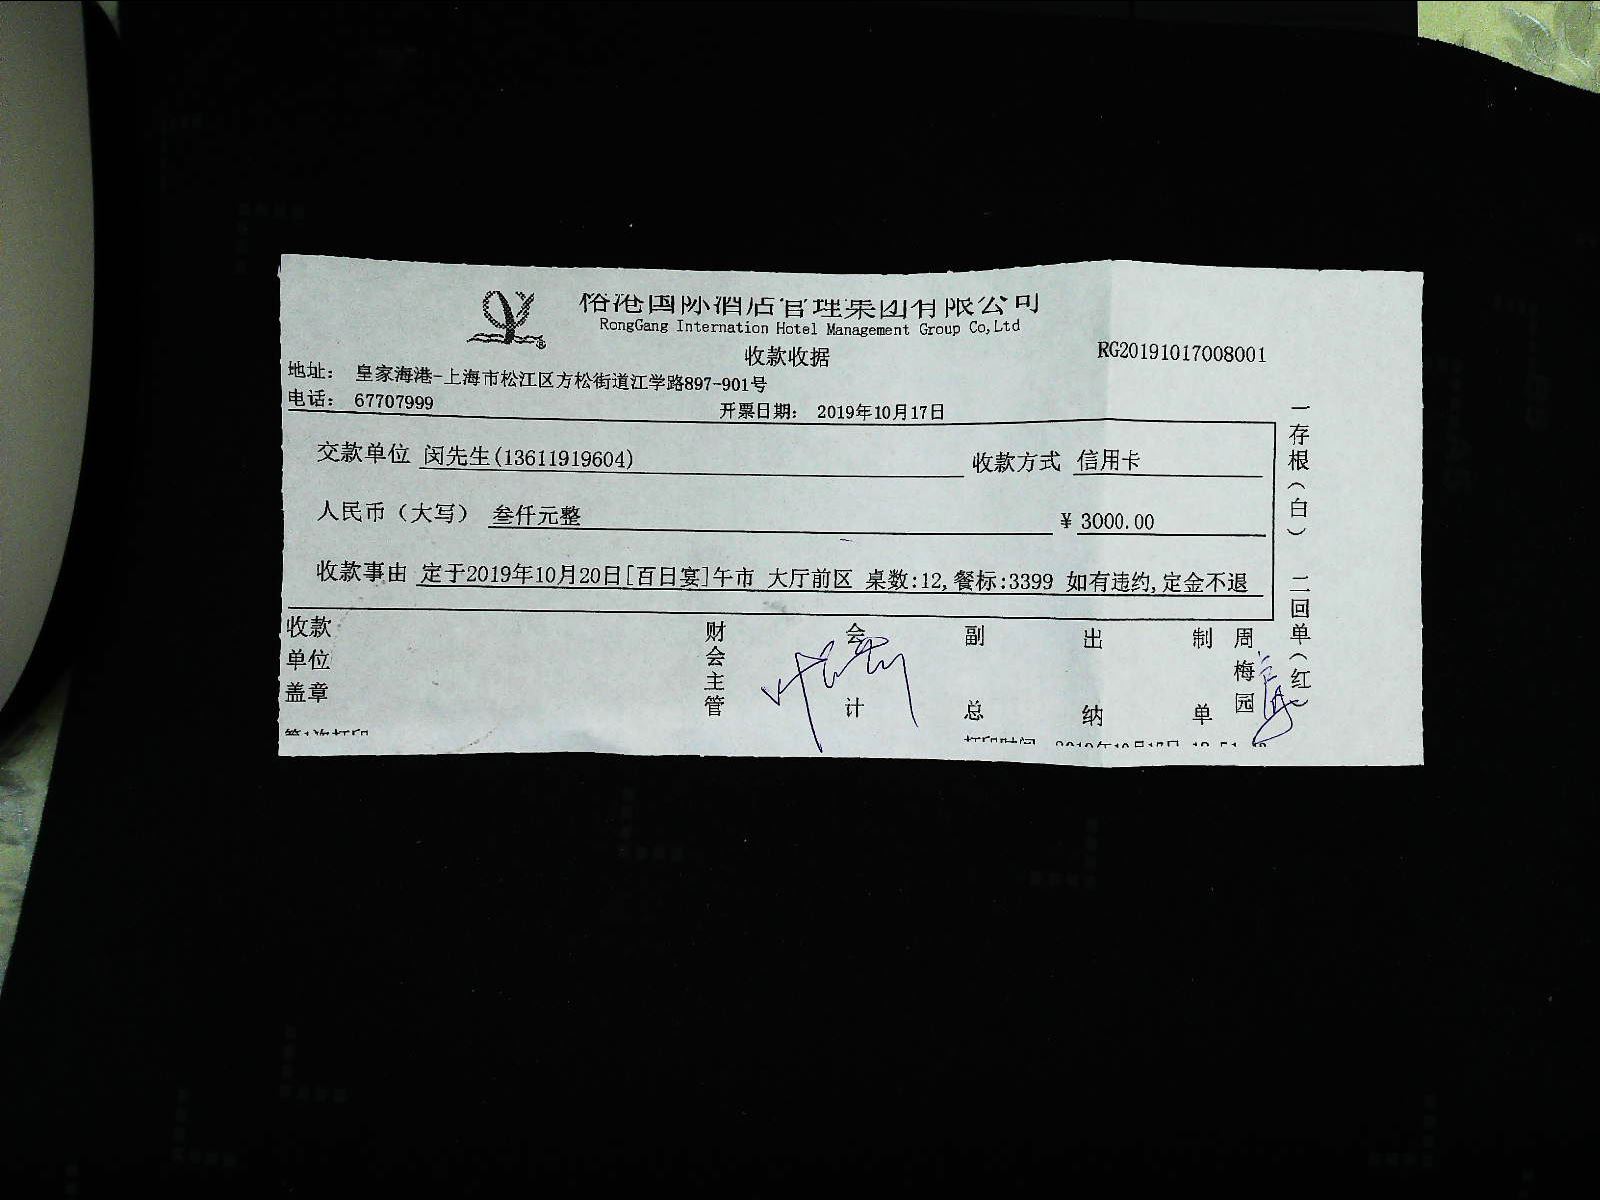 俗港国际酒店管理集团有限公司
RongGang Internation Hotel Management Group Co,Ltd
收款收据
RG20191017008001
地址： 皇家海港-上海市松江区方松街道江学路897-901号
电话： 67707999
开票日期： 2019年10月17日
交款单位 闵先生(13611919604) 收款方式 信用卡
人民币（大写） 叁仟元整 ¥ 3000.00
收款事由 定于2019年10月20日[百日宴]午市 大厅前区 桌数:12,餐标:3399 如有违约,定金不退
一存根（白） 二回单（红）
收款单位盖章 财会主管 会计 副总 出纳 制单 周梅园
第1次打印 打印时间 2019年10月17日